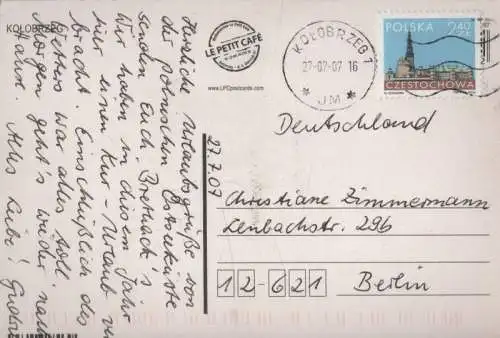 KOŁOBRZEG
Herzliche Urlaubsgrüße von
der polnischen Ostseeküste
senden Euch Brethack's
Wir haben in diesem Jahr
hier einen Kur-Urlaub ver
bracht. Einschließlich des
Wetters war alles toll.
Morgen geht's wieder nach
Hause. Alles Liebe!
LE PETIT CAFÉ
www.LPCpostcards.com
27.7.07
KOŁOBRZEG 1
27-07-07 16
* JM *
POLSKA
2,40 ZŁ
CZĘSTOCHOWA
Deutschland
Christiane Zimmermann
Lenbachstr. 29b
12-621
Berlin